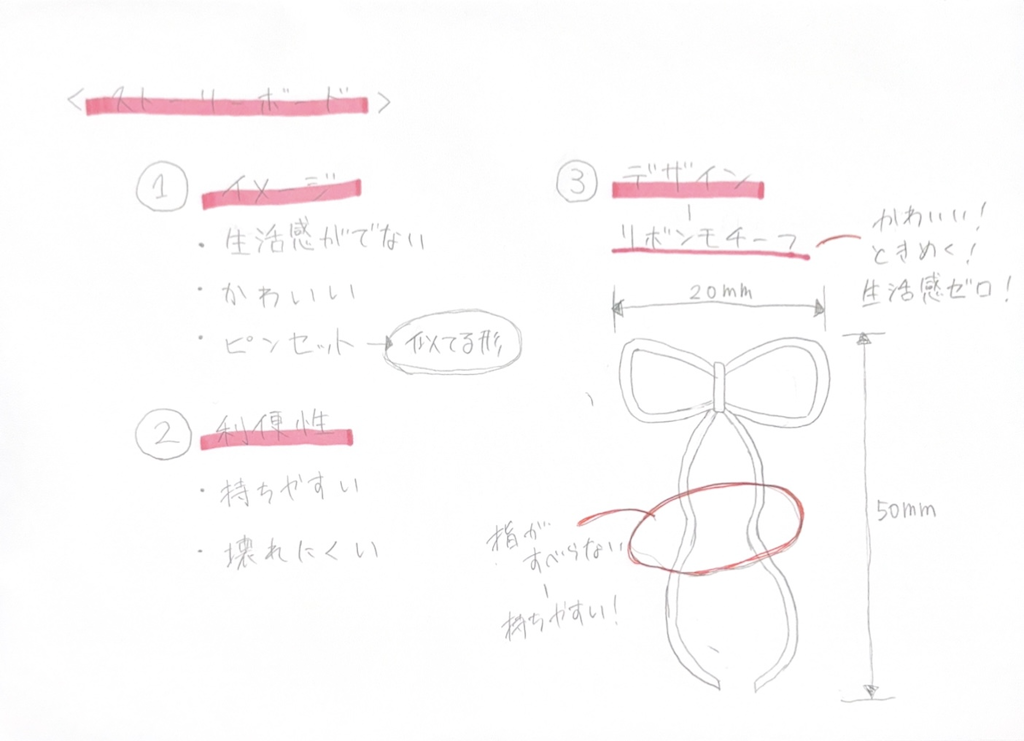 <ストーリーボード>
① イメージ
・生活感がでない
・かわいい
・ピンセット → 似てる形
② 利便性
・持ちやすい
・壊れにくい
③ デザイン
リボンモチーフ
かわいい!
ときめく!
生活感ゼロ!
20mm
50mm
指が
すべらない
持ちやすい!